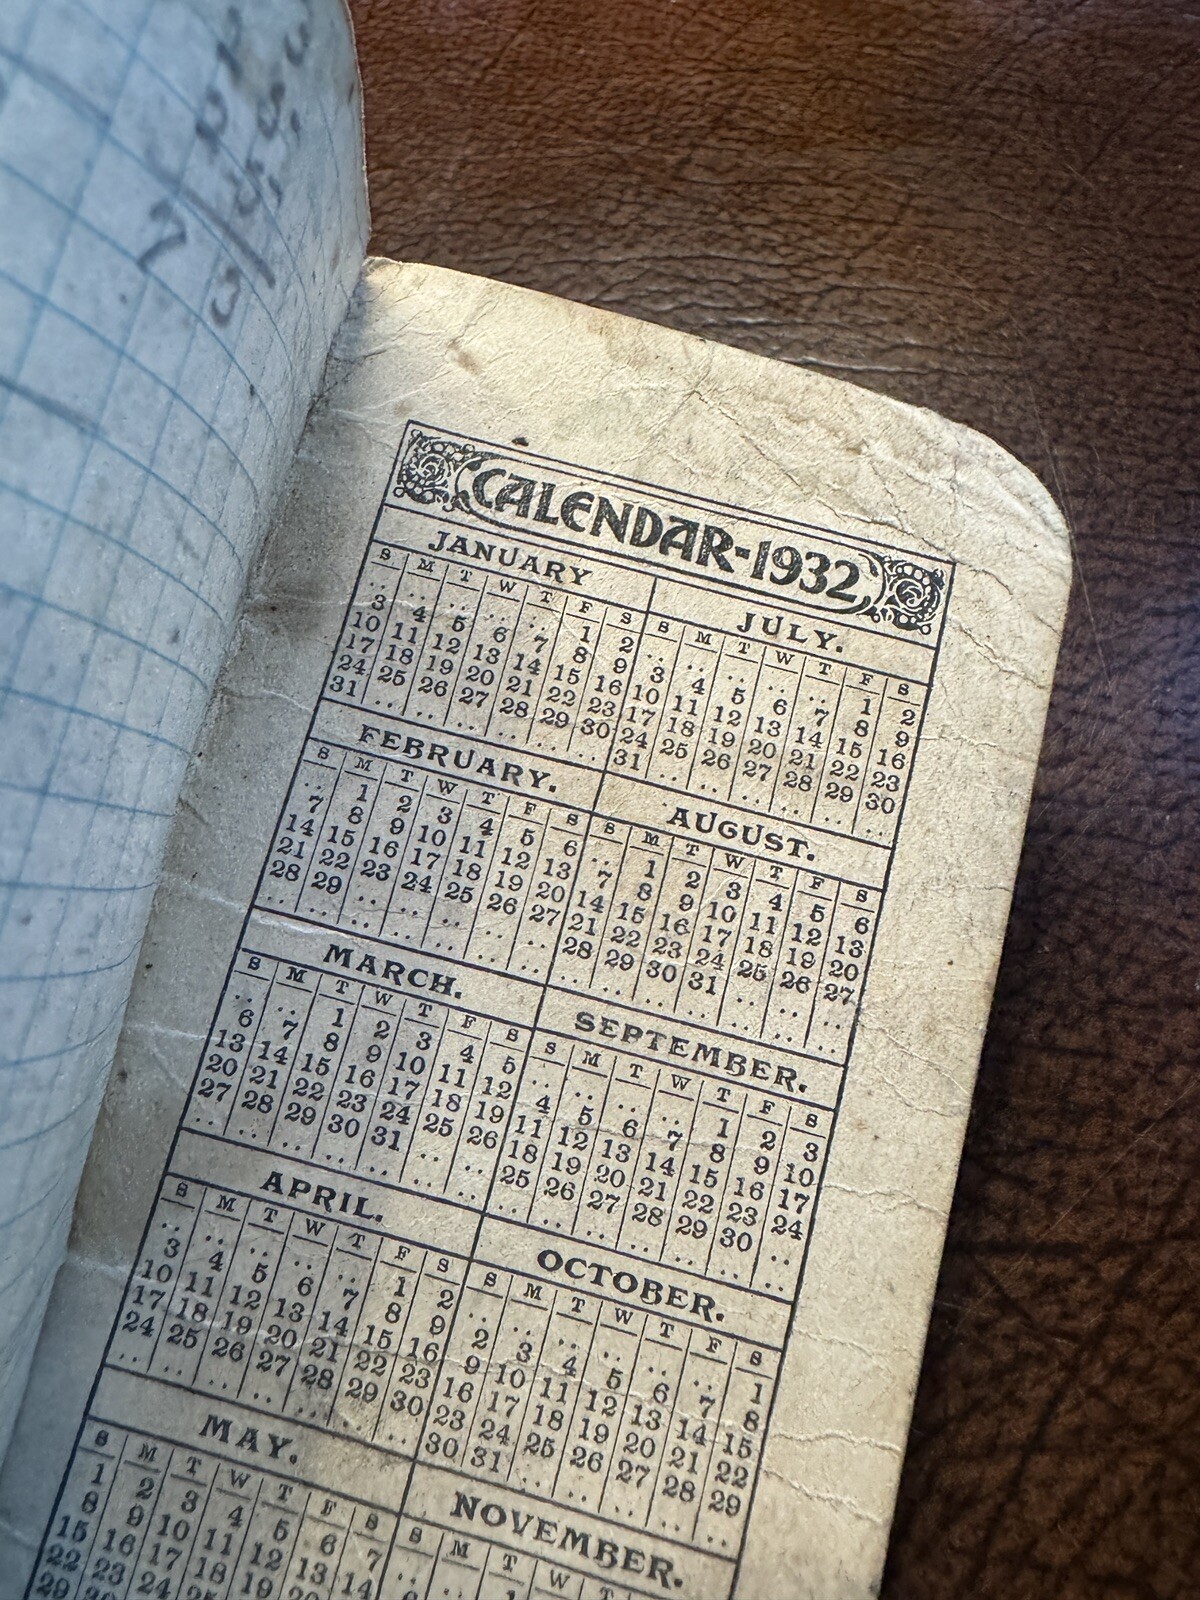 CALENDAR-1932
JANUARY
S M T W T F S
.. .. .. .. .. 1 2
3 4 5 6 7 8 9
10 11 12 13 14 15 16
17 18 19 20 21 22 23
24 25 26 27 28 29 30
31 .. .. .. .. .. ..
FEBRUARY.
S M T W T F S
.. 1 2 3 4 5 6
7 8 9 10 11 12 13
14 15 16 17 18 19 20
21 22 23 24 25 26 27
28 29 .. .. .. .. ..
.. .. .. .. .. .. ..
MARCH.
S M T W T F S
.. .. 1 2 3 4 5
6 7 8 9 10 11 12
13 14 15 16 17 18 19
20 21 22 23 24 25 26
27 28 29 30 31 .. ..
.. .. .. .. .. .. ..
APRIL.
S M T W T F S
.. .. .. .. .. 1 2
3 4 5 6 7 8 9
10 11 12 13 14 15 16
17 18 19 20 21 22 23
24 25 26 27 28 29 30
.. .. .. .. .. .. ..
MAY.
S M T W T F S
1 2 3 4 5 6 7
8 9 10 11 12 13 14
15 16 17 18 19 20
22 23 24 25
29 30
JULY.
S M T W T F S
.. .. .. .. .. 1 2
3 4 5 6 7 8 9
10 11 12 13 14 15 16
17 18 19 20 21 22 23
24 25 26 27 28 29 30
31 .. .. .. .. .. ..
AUGUST.
S M T W T F S
.. 1 2 3 4 5 6
7 8 9 10 11 12 13
14 15 16 17 18 19 20
21 22 23 24 25 26 27
28 29 30 31 .. .. ..
.. .. .. .. .. .. ..
SEPTEMBER.
S M T W T F S
.. .. .. .. 1 2 3
4 5 6 7 8 9 10
11 12 13 14 15 16 17
18 19 20 21 22 23 24
25 26 27 28 29 30 ..
.. .. .. .. .. .. ..
OCTOBER.
S M T W T F S
.. .. .. .. .. .. 1
2 3 4 5 6 7 8
9 10 11 12 13 14 15
16 17 18 19 20 21 22
23 24 25 26 27 28 29
30 31 .. .. .. .. ..
NOVEMBER.
S M T W T
.. .. 1